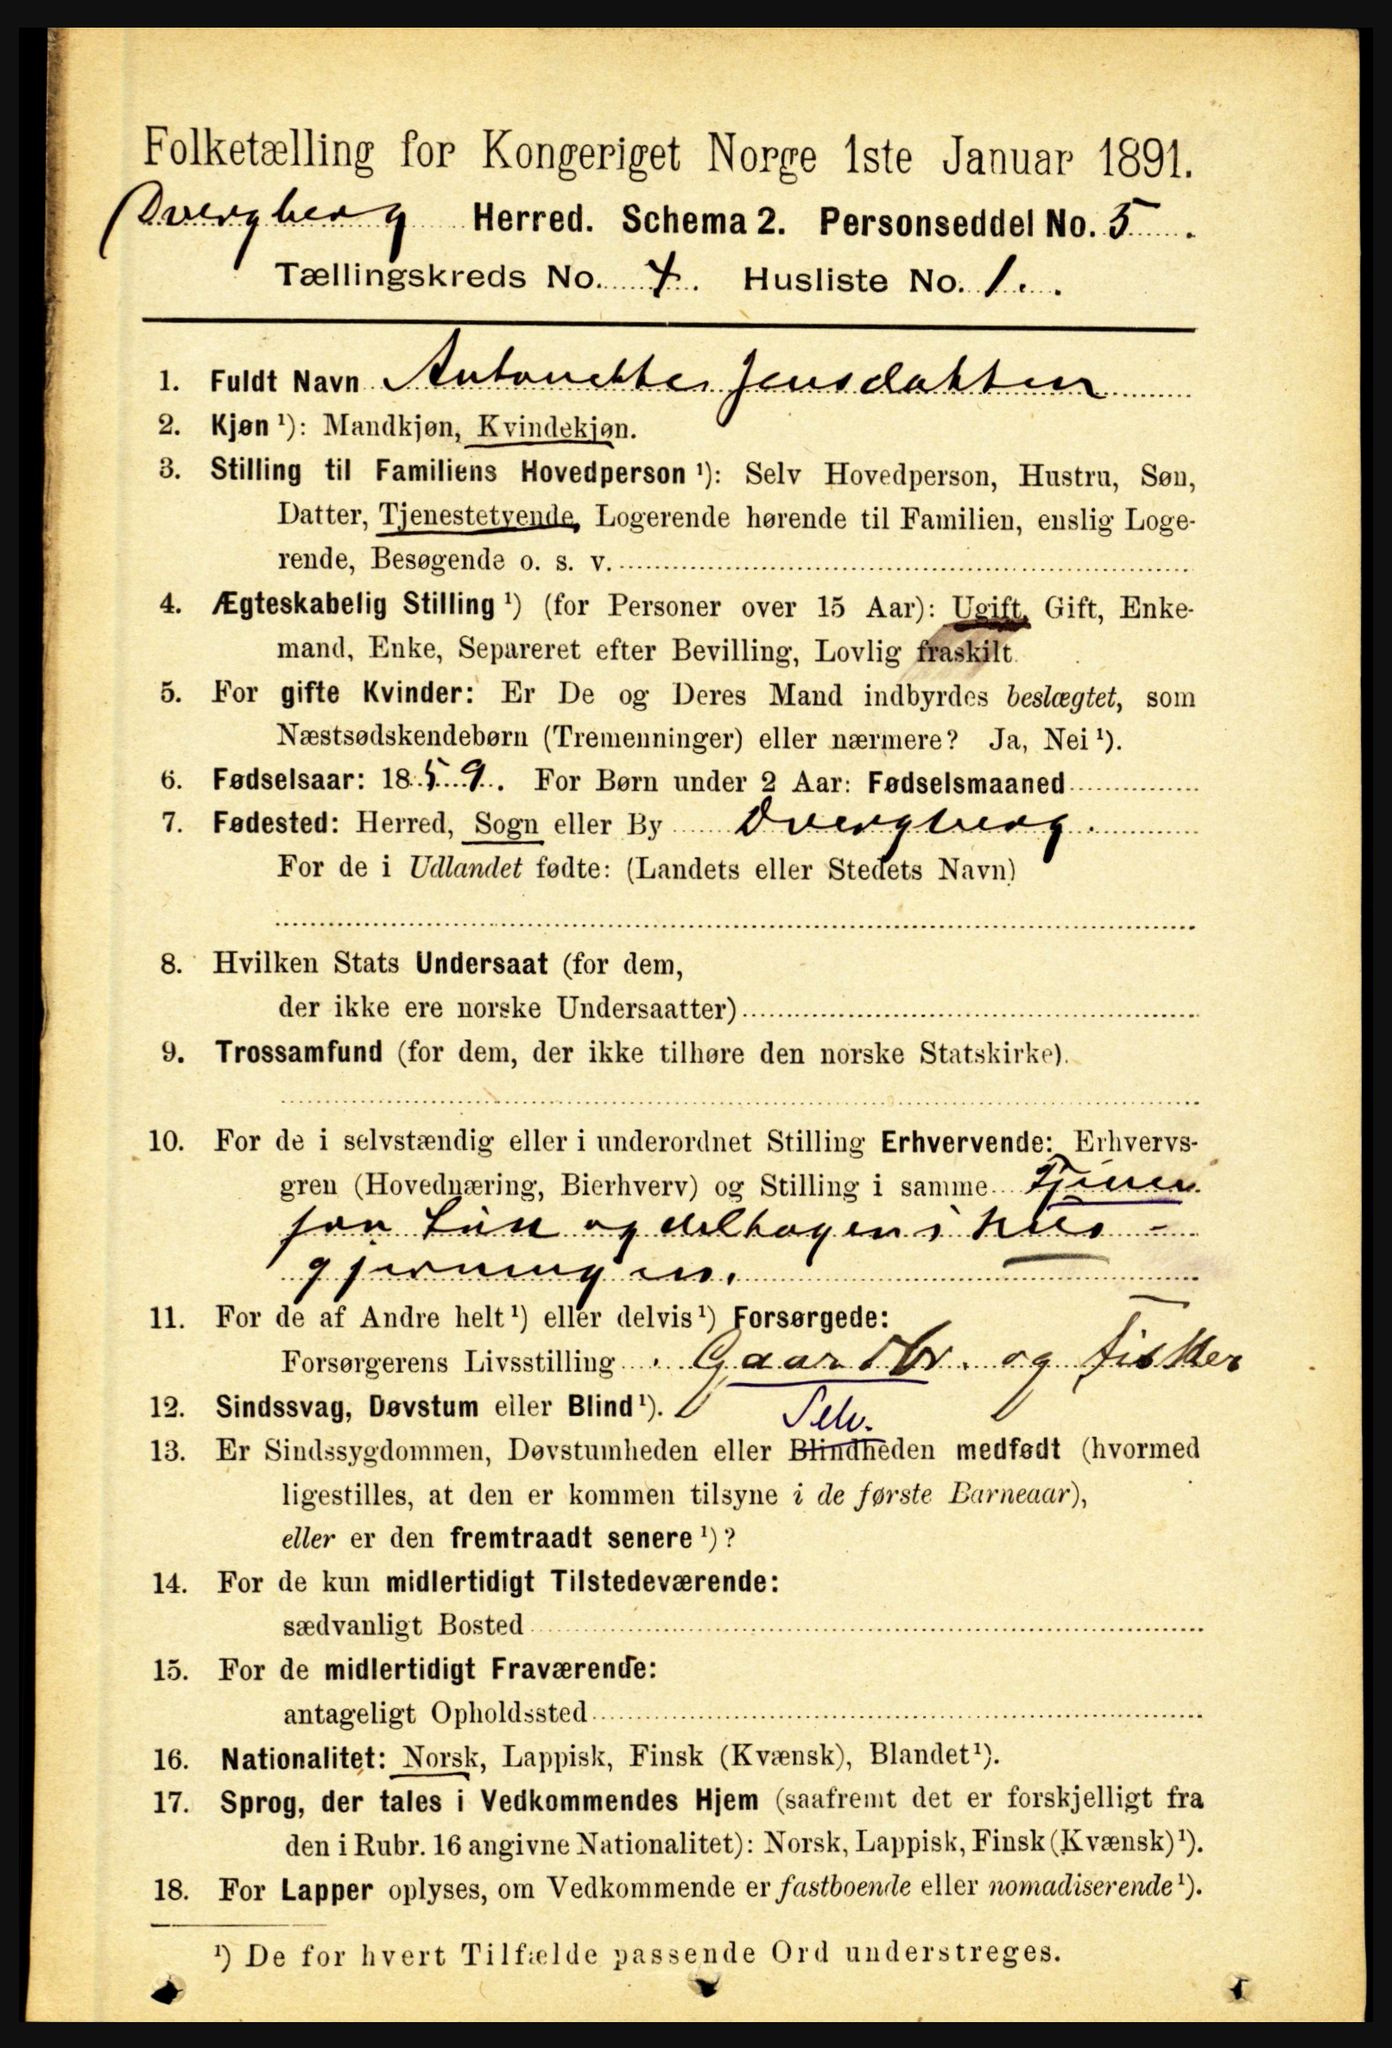 Folketælling for Kongeriget Norge 1ste Januar 1891.
Dvergberg Herred. Schema 2. Personseddel No. 5.
Tællingskreds No. 4. Husliste No. 1.
1. Fuldt Navn Antonette Jensdatter
2. Kjøn ¹): Mandkjøn, Kvindekjøn.
3. Stilling til Familiens Hovedperson ¹): Selv Hovedperson, Hustru, Søn,
Datter, Tjenestetyende, Logerende hørende til Familien, enslig Loge-
rende, Besøgende o. s. v.
4. Ægteskabelig Stilling ¹) (for Personer over 15 Aar): Ugift, Gift, Enke-
mand, Enke, Separeret efter Bevilling, Lovlig fraskilt
5. For gifte Kvinder: Er De og Deres Mand indbyrdes beslægtet, som
Næstsødskendebørn (Tremenninger) eller nærmere? Ja, Nei ¹).
6. Fødselsaar: 1859. For Børn under 2 Aar: Fødselsmaaned
7. Fødested: Herred, Sogn eller By Dvergberg.
For de i Udlandet fødte: (Landets eller Stedets Navn)
8. Hvilken Stats Undersaat (for dem,
der ikke ere norske Undersaatter)
9. Trossamfund (for dem, der ikke tilhøre den norske Statskirke).
10. For de i selvstændig eller i underordnet Stilling Erhvervende: Erhvervs-
gren (Hovednæring, Bierhverv) og Stilling i samme Tjener
for Løn og deltager i hus-
gjerningen.
11. For de af Andre helt ¹) eller delvis ¹) Forsørgede:
Forsørgerens Livsstilling Gaardbr. og fisker
12. Sindssvag, Døvstum eller Blind ¹). Selv.
13. Er Sindssygdommen, Døvstumheden eller Blindheden medfødt (hvormed
ligestilles, at den er kommen tilsyne i de første Barneaar),
eller er den fremtraadt senere ¹)?
14. For de kun midlertidigt Tilstedeværende:
sædvanligt Bosted
15. For de midlertidigt Fraværende:
antageligt Opholdssted
16. Nationalitet: Norsk, Lappisk, Finsk (Kvænsk), Blandet ¹).
17. Sprog, der tales i Vedkommendes Hjem (saafremt det er forskjelligt fra
den i Rubr. 16 angivne Nationalitet): Norsk, Lappisk, Finsk (Kvænsk) ¹).
18. For Lapper oplyses, om Vedkommende er fastboende eller nomadiserende ¹).
¹) De for hvert Tilfælde passende Ord understreges.